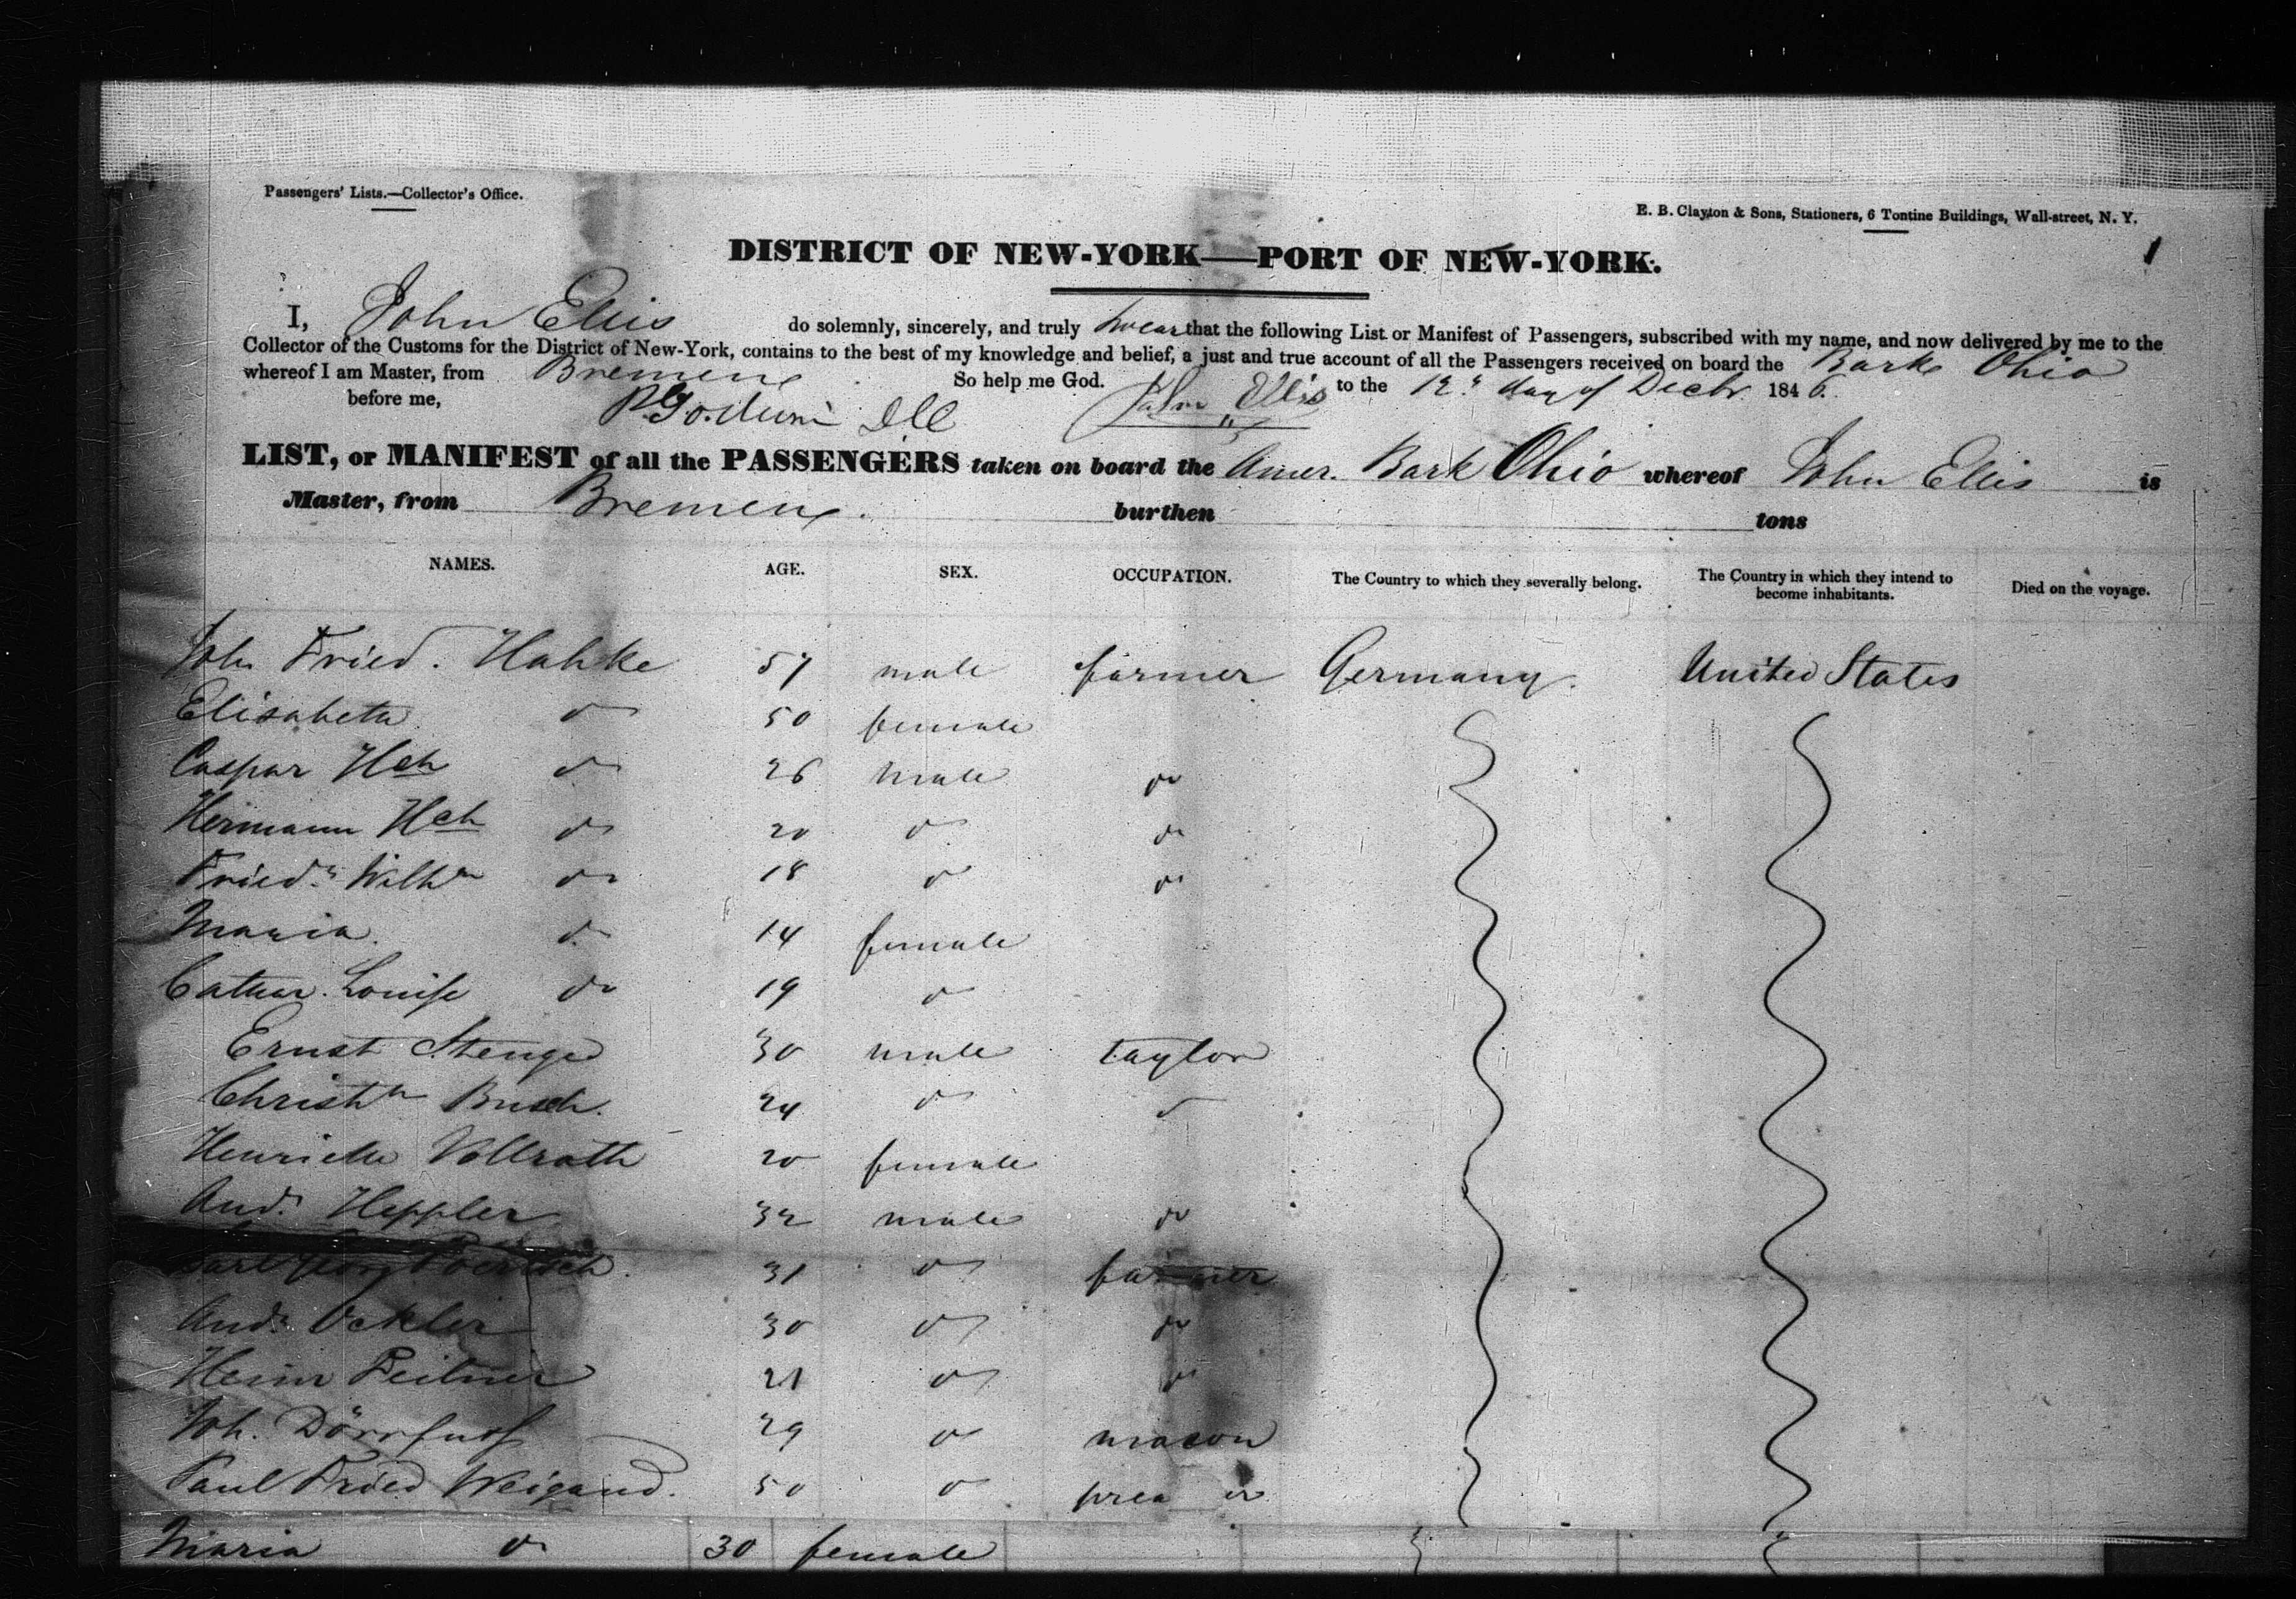 Passengers' Lists.—Collector's Office.
E. B. Clayton & Sons, Stationers, 6 Tontine Buildings, Wall-street, N. Y.
1
DISTRICT OF NEW-YORK—PORT OF NEW-YORK.
I, John Ellis do solemnly, sincerely, and truly swear that the following List or Manifest of Passengers, subscribed with my name, and now delivered by me to the
Collector of the Customs for the District of New-York, contains to the best of my knowledge and belief, a just and true account of all the Passengers received on board the Bark Ohio
whereof I am Master, from Bremen So help me God. to the 12 day of Decbr 1846.
before me, John Ellis
LIST, or MANIFEST of all the PASSENGERS taken on board the Amer. Bark Ohio whereof John Ellis is
Master, from Bremen. burthen tons
NAMES. AGE. SEX. OCCUPATION. The Country to which they severally belong. The Country in which they intend to become inhabitants. Died on the voyage.
Joh. Fried. Hahke 57 male farmer Germany. United States
Elisabeth do 50 female
Caspar Hch do 26 male do
Hermann Hch do 20 do do
Friedr. Wilhm do 18 do do
Maria do 14 female
Cathar. Louise do 19 do
Ernst Stenge 30 male taylor
Christn Busch. 24 do do
Henriette Vollrath 20 female
Andr. Heppler 32 male do
Carl Georg 31 do farmer
Andr. Ockler 30 do do
Heinr 21 do do
Joh. 29 do mason
Paul Fried Weigand. 50 do
Maria do 30 female